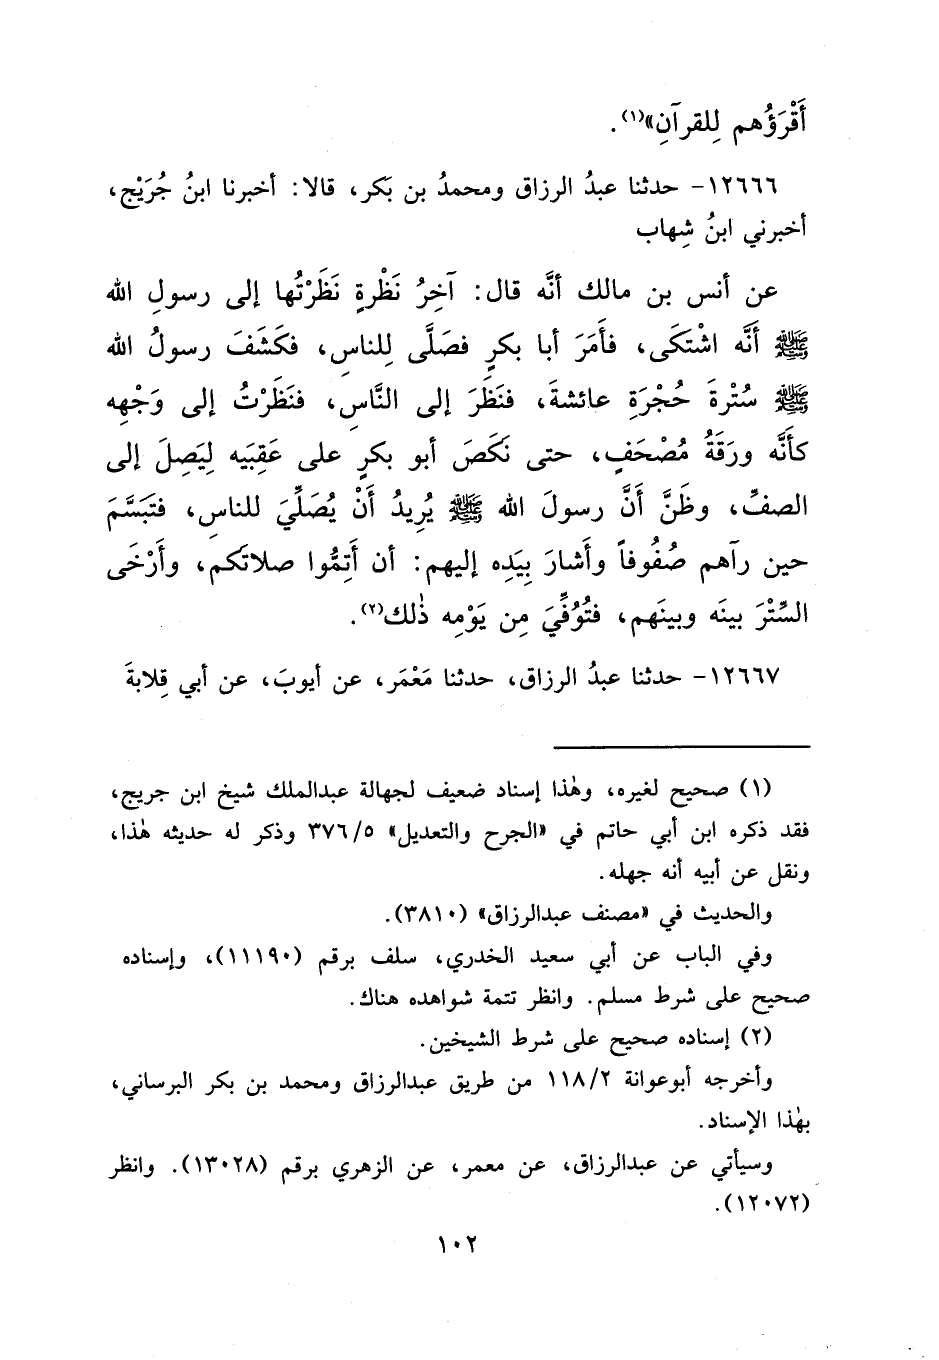 أَقْرَؤُهم لِلقرآنِ»(١).
١٢٦٦٦- حدثنا عبدُ الرزاق ومحمدُ بن بَكر، قالا: أخبرنا ابنُ جُرَيْج،
أخبرني ابنُ شِهاب
عن أنس بن مالك أنَّه قال: آخِرُ نَظْرةٍ نَظَرْتُها إلى رسولِ الله
ﷺ أَنَّه اشْتَكَى، فأَمَرَ أبا بكرٍ فصَلَّى لِلناسِ، فكَشَفَ رسولُ الله
ﷺ سُتْرةَ حُجْرَةِ عائشةَ، فنَظَرَ إلى النَّاسِ، فنَظَرْتُ إلى وَجْهِه
كأَنَّه ورَقَةُ مُصْحَفٍ، حتى نَكَصَ أبو بكرٍ على عَقِبَيه لِيَصِلَ إلى
الصفِّ، وظَنَّ أَنَّ رسولَ الله ﷺ يُرِيدُ أَنْ يُصَلِّيَ للناسِ، فتَبَسَّمَ
حين رآهم صُفُوفاً وأَشارَ بِيَدِه إليهم: أن أَتِمُّوا صلاتَكم، وأَرْخَى
السِّتْرَ بينَه وبينَهم، فتُوُفِّيَ مِن يَوْمِه ذٰلك(٢).
١٢٦٦٧- حدثنا عبدُ الرزاق، حدثنا مَعْمَر، عن أيوبَ، عن أبي قِلابةَ
(١) صحيح لغيره، وهٰذا إسناد ضعيف لجهالة عبدالملك شيخ ابن جريج،
فقد ذكره ابن أبي حاتم في «الجرح والتعديل» ٣٧٦/٥ وذكر له حديثه هٰذا،
ونقل عن أبيه أنه جهله.
والحديث في «مصنف عبدالرزاق» (٣٨١٠).
وفي الباب عن أبي سعيد الخدري، سلف برقم (١١١٩٠)، وإسناده
صحيح على شرط مسلم. وانظر تتمة شواهده هناك.
(٢) إسناده صحيح على شرط الشيخين.
وأخرجه أبوعوانة ١١٨/٢ من طريق عبدالرزاق ومحمد بن بكر البرساني،
بهٰذا الإسناد.
وسيأتي عن عبدالرزاق، عن معمر، عن الزهري برقم (١٣٠٢٨). وانظر
(١٢٠٧٢).
١٠٢